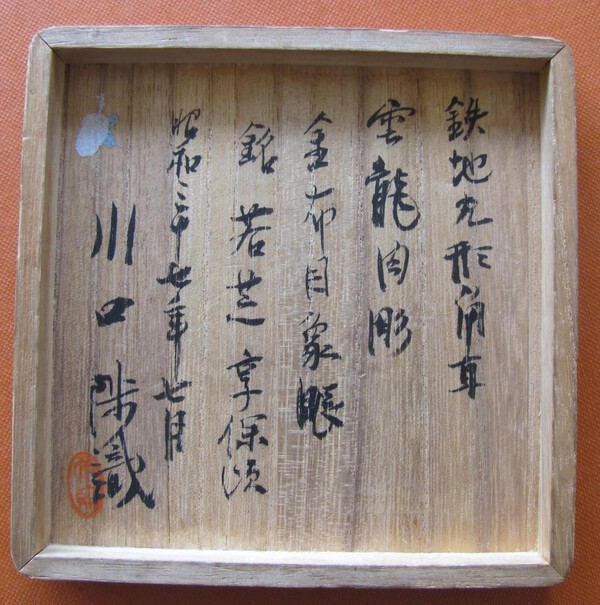 鉄地丸形角耳
雲龍肉彫
金布目象嵌
銘 若芝 享保頃
昭和三十七年七月
川口陟識